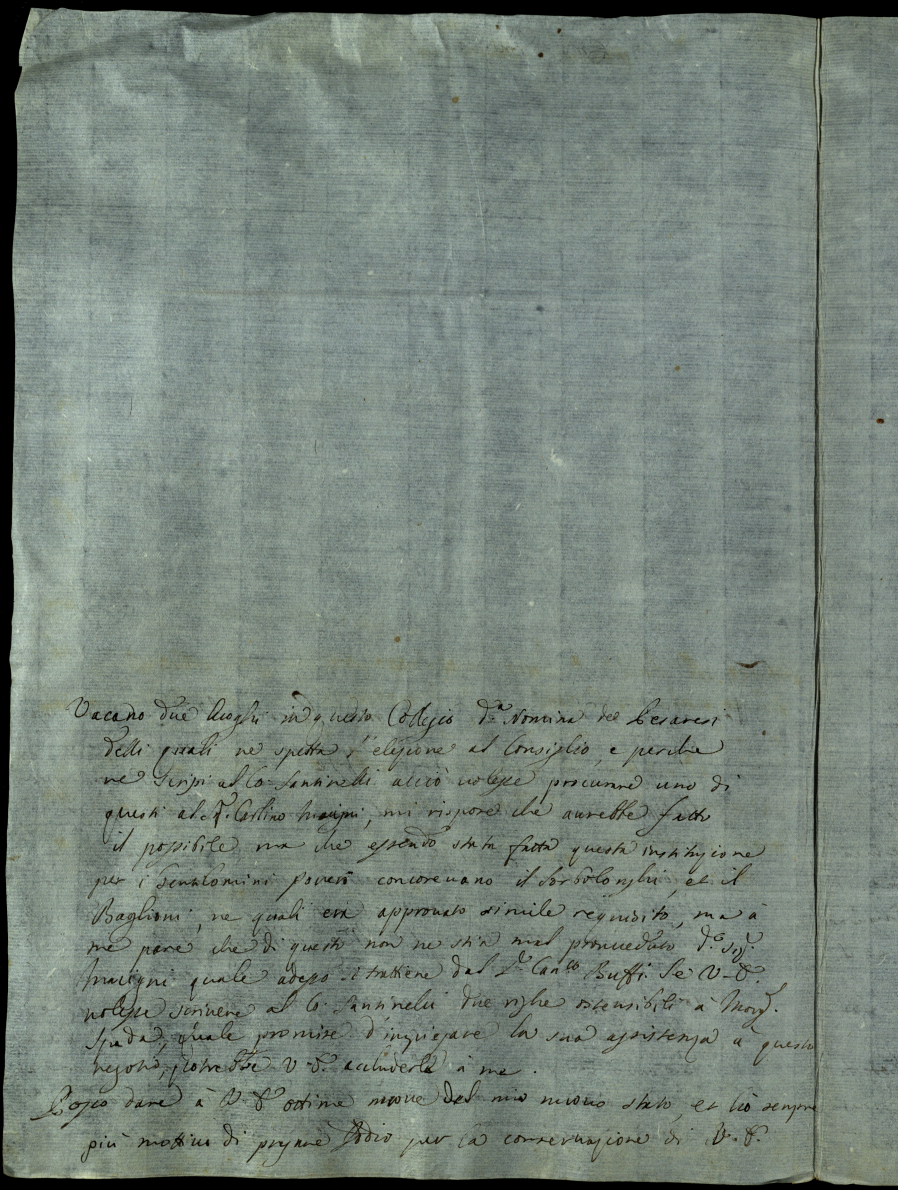 Vacano due luoghi in questo Collegio d.a Nomina de Pesaresi
delli quali ne spetta l'elezione al Consiglio, e perche
ne scrissi al Co. Santinelli acciò volesse procurare uno di
questi al Carlino, mi rispose che avrebbe fatto
il possibile, ma che essendo stata fatta questa instituzione
per i Gentilomini poveri concorevano il Sorbolonghi, et il
Baglioni, ne quali era approvato simile requisito, ma à
me pare che di questo non ne stia mal proveduto d.o Sig.r
quale adesso si trattiene dal Can.co Buffi. Se V. S.
volesse scrivere al Co. Santinelli due righe ostensibili à Mons.r
Spada, quale promise d'impiegare la sua assistenza à questo
negotio, potrebbe V. S. accluderla à me.
Posso dare à V. S. ottime nuove del mio nuovo stato, et hò sempre
più motivo di pregare Iddio per la conservazione di V. S.